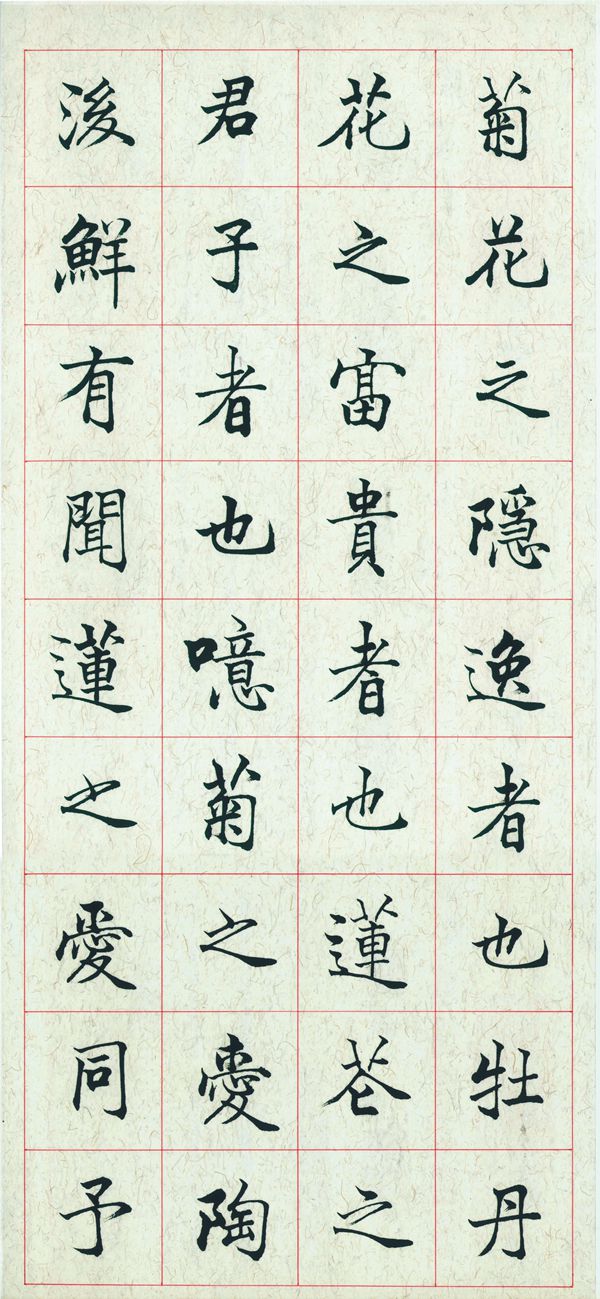 菊花之隱逸者也牡丹
花之富貴者也蓮花之
君子者也噫菊之愛陶
後鮮有聞蓮之愛同予